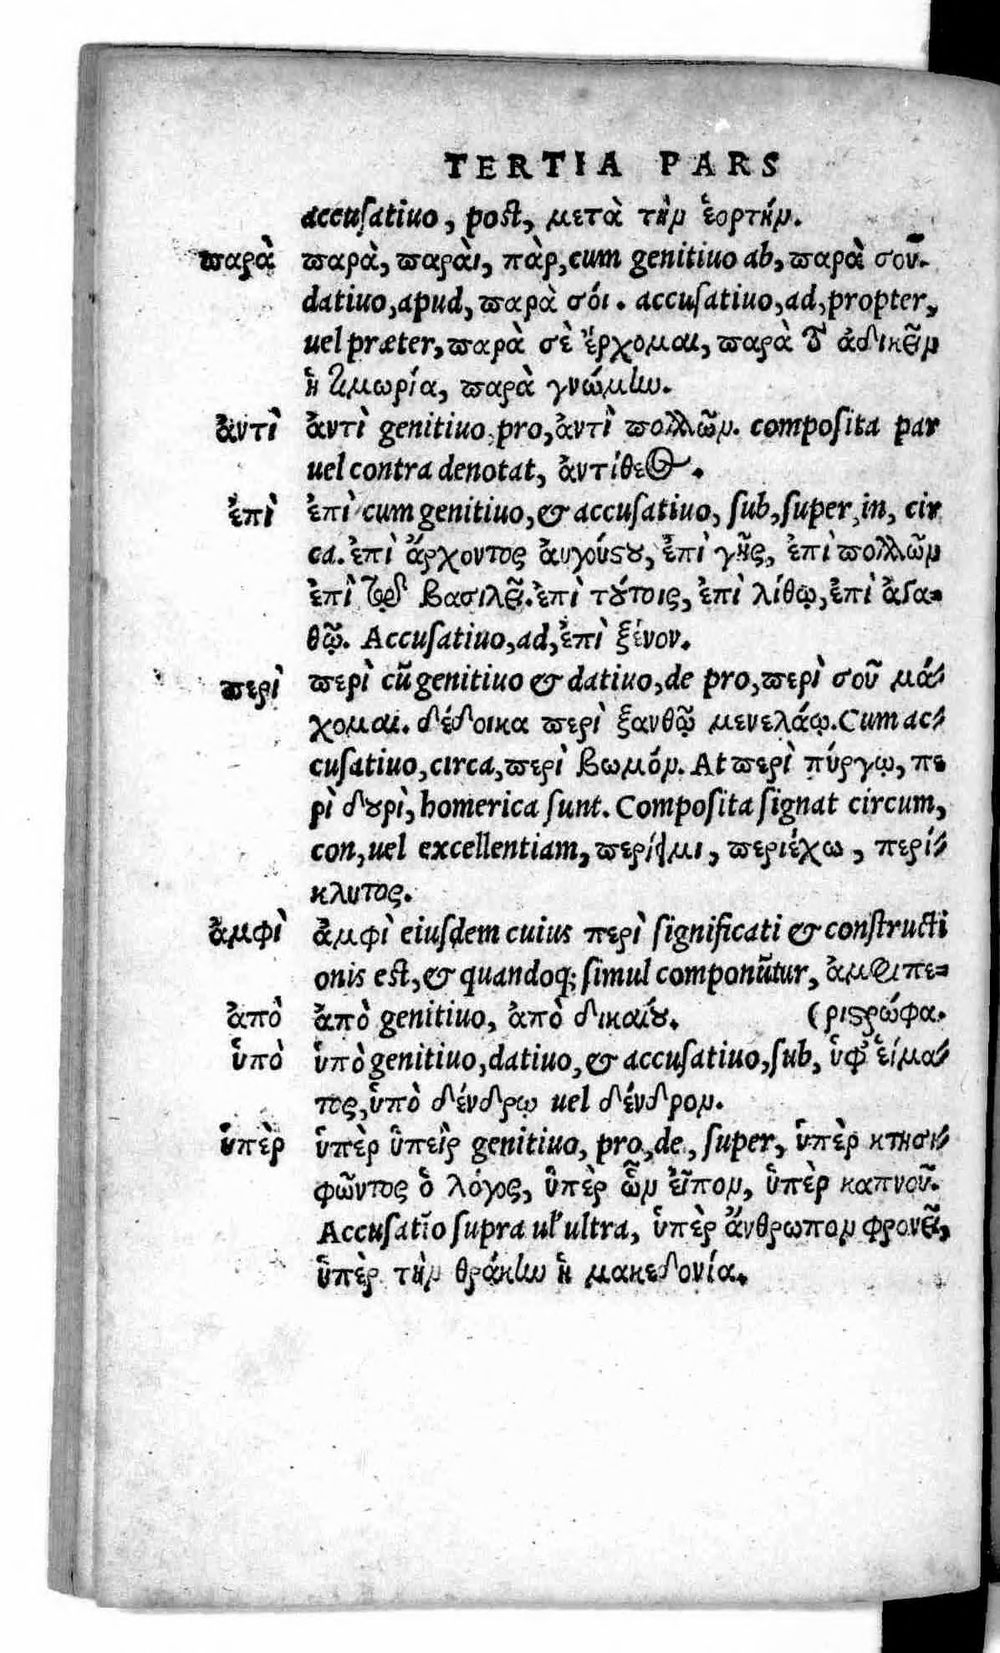 TERTIA PARS
accusatiuo, post, μετὰ τὴν ἑορτήν.
παρὰ παρὰ, παραὶ, πὰρ, cum genitiuo ab, παρὰ σοῦ.
datiuo, apud, παρὰ σόι. accusatiuo, ad, propter,
uel præter, παρὰ σὲ ἔρχομαι, παρὰ τ ἀδικεῖν
ἡ τιμωρία, παρὰ γνώμην.
ἀντὶ ἀντὶ genitiuo, pro, ἀντὶ πολλῶν. composita par
uel contra denotat, ἀντίθεος.
ἐπὶ ἐπὶ cum genitiuo, & accusatiuo, sub, super, in, cir
ca. ἐπὶ ἄρχοντος ἀυγούϛου, ἐπὶ γῆς, ἐπὶ πολλῶν
ἐπὶ βασιλεῖ. ἐπὶ τούτοις, ἐπὶ λίθῳ, ἐπὶ ἀγα-
θῷ. Accusatiuo, ad, ἐπὶ ξένον.
περὶ περὶ cũ genitiuo & datiuo, de pro, περὶ σοῦ μά-
χομαι. δέδοικα περὶ ξανθῷ μενελάῳ. Cum ac-
cusatiuo, circa, περὶ βωμόν. At περὶ πύργῳ, πε
ρὶ δουρὶ, homerica sunt. Composita signat circum,
con, uel excellentiam, περίειμι, περιέχω, περί-
κλυτος.
ἀμφὶ ἀμφὶ eiusdem cuius περὶ significati & constructi
onis est, & quandoq; simul componũtur, ἀμφιπε-
ἀπὸ ἀπὸ genitiuo, ἀπὸ δικαίου. (ριϛρώφα.
ὑπὸ ὑπὸ genitiuo, datiuo, & accusatiuo, sub, ὑφ' εἵμα-
τος, ὑπὸ δένδρῳ uel δένδρον.
ὑπὲρ ὑπὲρ ὑπεὶρ genitiuo, pro, de, super, ὑπὲρ κτησι-
φῶντος ὁ λόγος, ὑπὲρ ὧν εἶπον, ὑπὲρ καπνοῦ.
Accusatĩo supra ul' ultra, ὑπὲρ ἄνθρωπον φρονεῖ,
ὑπὲρ τὴν θράκην ἢ μακεδονία.